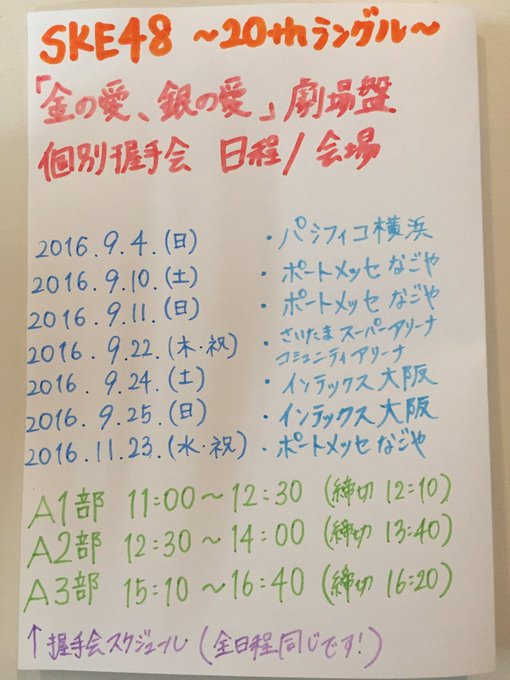 SKE48 〜20thラングル〜
「金の愛、銀の愛」劇場盤
個別握手会 日程/会場
2016.9.4.(日) ・パシフィコ横浜
2016.9.10.(土) ・ポートメッセなごや
2016.9.11.(日) ・ポートメッセなごや
2016.9.22.(木・祝) ・さいたまスーパーアリーナ
コミュニティアリーナ
2016.9.24.(土) ・インテックス大阪
2016.9.25.(日) ・インテックス大阪
2016.11.23.(水・祝) ・ポートメッセなごや
A1部 11:00〜12:30 (締切 12:10)
A2部 12:30〜14:00 (締切 13:40)
A3部 15:10〜16:40 (締切 16:20)
↑握手会スケジュール(全日程同じです!)